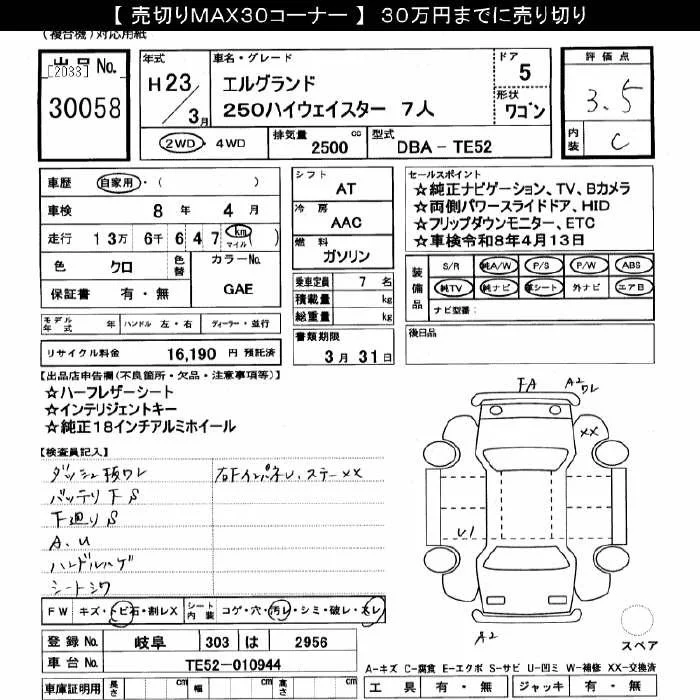 【 売切りMAX30コーナー 】 30万円までに売り切り
(複合機)対応用紙
出品No.
[2033]
30058
年式
H 23 / 3月
車名・グレード
エルグランド
250ハイウェイスター 7人
ドア
5
形状
ワゴン
評価点
3.5
内装
C
2WD・4WD
排気量
2500 cc
型式
DBA - TE52
車歴 自家用・( )
車検 8年 4月
走行 13万 6千 6 4 7 km マイル ( )
色 クロ
色替
カラーNo.
GAE
保証書 有・無
シフト
AT
冷房
AAC
燃料
ガソリン
乗車定員 7 名
積載量 kg
総重量 kg
書類期限
3月 31日
セールスポイント
☆純正ナビゲーション、TV、Bカメラ
☆両側パワースライドドア、HID
☆フリップダウンモニター、ETC
☆車検令和8年4月13日
装備品
S/R 純A/W P/S P/W ABS
純TV 純ナビ 革シート 外ナビ エアB
ナビ型番:
モデル年式 年 ハンドル 左・右 ディーラー・並行
後日品
リサイクル料金 16,190 円 預託済
【出品店申告欄(不良箇所・欠品・注意事項等)】
☆ハーフレザーシート
☆インテリジェントキー
☆純正18インチアルミホイール
【検査員記入】
ダッシュ板ワレ
バッテリ下S
下廻りS
A.U
ハンドルハゲ
シートシワ
右Fインパネレ、ステーXX
FA
A2
ワレ
XX
U1
A2
スペア
FW キズ・トビ石・割レX
シート内装 コゲ・穴・汚レ・シミ・破レ・スレ
登録No. 岐阜 303 は 2956
車台No. TE52-010944
車庫証明用 長さ cm 幅 cm 高さ cm
A-キズ C-腐食 E-エクボ S-サビ U-凹ミ W-補修 XX-交換済
工具 有・無 ジャッキ 有・無